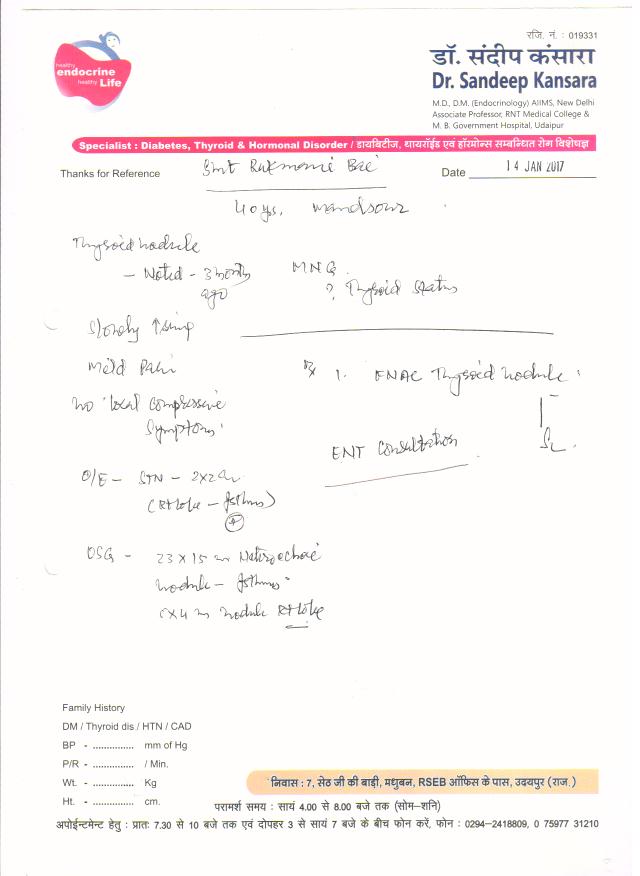 रजि. नं. : 019331
healthy
endocrine
healthy Life
डॉ. संदीप कंसारा
Dr. Sandeep Kansara
M.D., D.M. (Endocrinology) AIIMS, New Delhi
Associate Professor, RNT Medical College &
M. B. Government Hospital, Udaipur
Specialist : Diabetes, Thyroid & Hormonal Disorder / डायबिटीज, थायरॉईड एवं हॉरमोन्स सम्बन्धित रोग विशेषज्ञ
Thanks for Reference Smt Rukmani Bai Date 14 JAN 2017
40 yrs, mandsour
Thyroid nodule
- Noted - 3 month ago
MNG
? Thyroid status
Slowly ↑sing
Mild Pain
No local compressive
symptoms
Rx 1. FNAC Thyroid nodule
ENT Consultation
O/E - STN - 2x2 cm
(Rt lobe - Isthmus)
USG - 23 x 15 mm Heteroechoic
nodule - Isthmus
nodule Rt lobe
Family History
DM / Thyroid dis / HTN / CAD
BP - .............. mm of Hg
P/R - .............. / Min.
Wt. - .............. Kg
Ht. - .............. cm.
निवास : 7, सेठ जी की बाड़ी, मधुबन, RSEB ऑफिस के पास, उदयपुर (राज.)
परामर्श समय : सायं 4.00 से 8.00 बजे तक (सोम-शनि)
अपोईन्टमेन्ट हेतु : प्रातः 7.30 से 10 बजे तक एवं दोपहर 3 से सायं 7 बजे के बीच फोन करें, फोन : 0294-2418809, 0 75977 31210